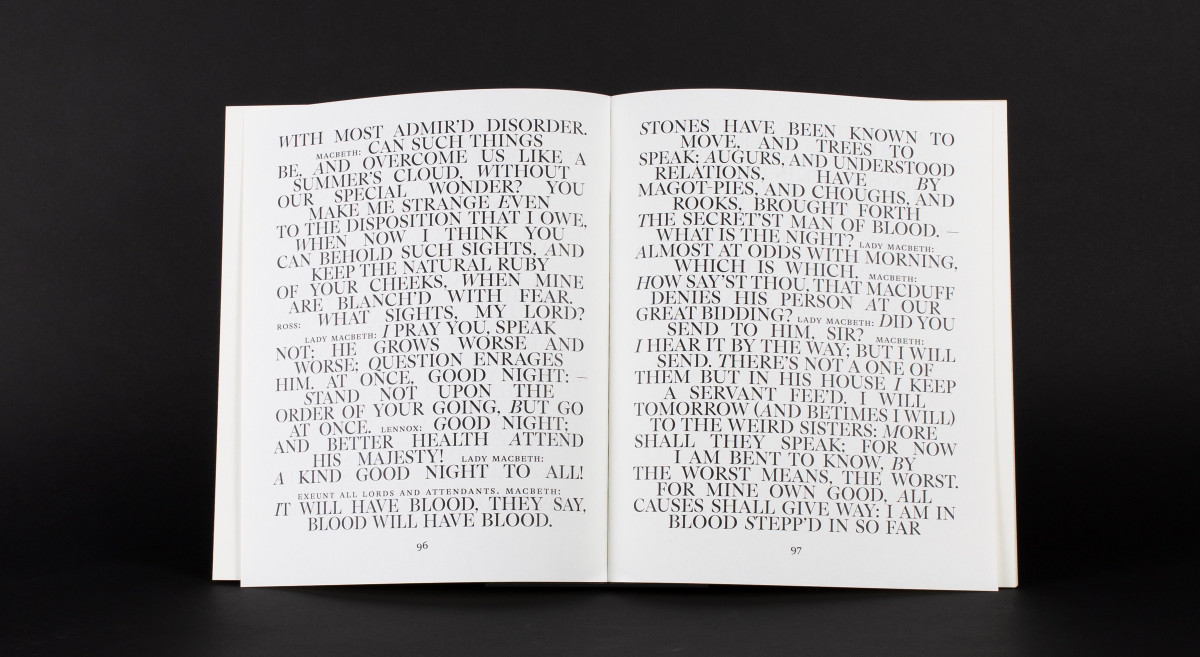 WITH MOST ADMIR'D DISORDER.
MACBETH: CAN SUCH THINGS
BE, AND OVERCOME US LIKE A
SUMMER'S CLOUD, WITHOUT
OUR SPECIAL WONDER? YOU
MAKE ME STRANGE EVEN
TO THE DISPOSITION THAT I OWE,
WHEN NOW I THINK YOU
CAN BEHOLD SUCH SIGHTS, AND
KEEP THE NATURAL RUBY
OF YOUR CHEEKS, WHEN MINE
ARE BLANCH'D WITH FEAR.
ROSS: WHAT SIGHTS, MY LORD?
LADY MACBETH: I PRAY YOU, SPEAK
NOT: HE GROWS WORSE AND
WORSE; QUESTION ENRAGES
HIM. AT ONCE, GOOD NIGHT: —
STAND NOT UPON THE
ORDER OF YOUR GOING, BUT GO
AT ONCE. LENNOX: GOOD NIGHT;
AND BETTER HEALTH ATTEND
HIS MAJESTY! LADY MACBETH:
A KIND GOOD NIGHT TO ALL!
EXEUNT ALL LORDS AND ATTENDANTS. MACBETH:
IT WILL HAVE BLOOD, THEY SAY,
BLOOD WILL HAVE BLOOD.
96
STONES HAVE BEEN KNOWN TO
MOVE, AND TREES TO
SPEAK; AUGURS, AND UNDERSTOOD
RELATIONS, HAVE BY
MAGOT-PIES, AND CHOUGHS, AND
ROOKS, BROUGHT FORTH
THE SECRET'ST MAN OF BLOOD. —
WHAT IS THE NIGHT? LADY MACBETH:
ALMOST AT ODDS WITH MORNING,
WHICH IS WHICH. MACBETH:
HOW SAY'ST THOU, THAT MACDUFF
DENIES HIS PERSON AT OUR
GREAT BIDDING? LADY MACBETH: DID YOU
SEND TO HIM, SIR? MACBETH:
I HEAR IT BY THE WAY; BUT I WILL
SEND. THERE'S NOT A ONE OF
THEM BUT IN HIS HOUSE I KEEP
A SERVANT FEE'D. I WILL
TOMORROW (AND BETIMES I WILL)
TO THE WEIRD SISTERS: MORE
SHALL THEY SPEAK; FOR NOW
I AM BENT TO KNOW, BY
THE WORST MEANS, THE WORST.
FOR MINE OWN GOOD, ALL
CAUSES SHALL GIVE WAY: I AM IN
BLOOD STEPP'D IN SO FAR
97